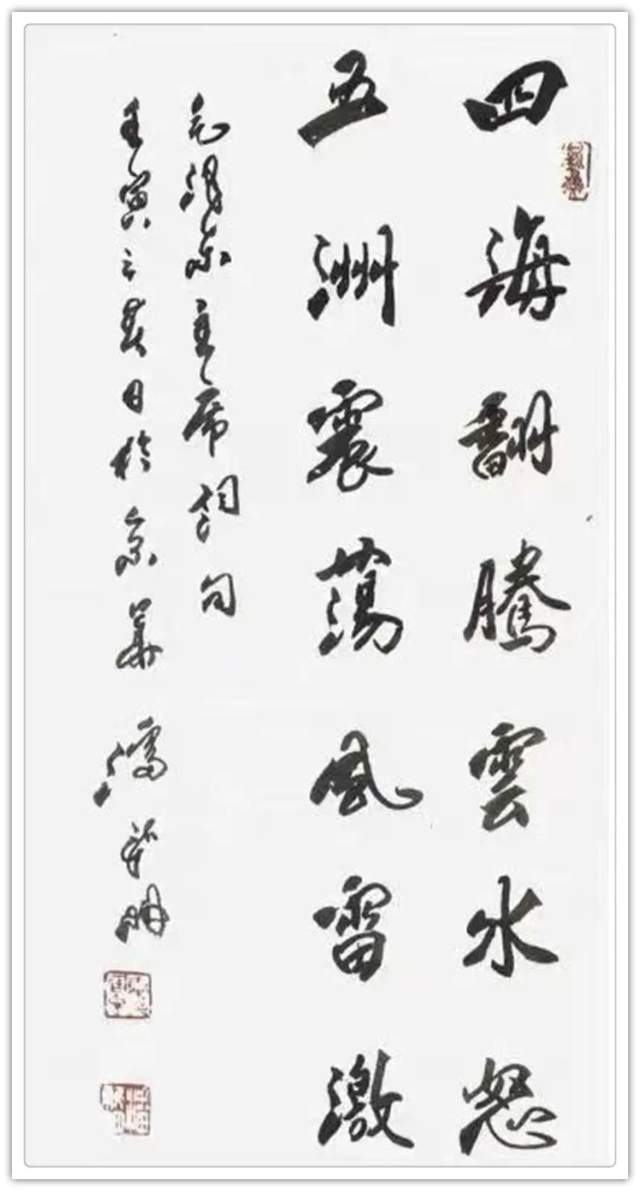 四海翻騰雲水怒
五洲震蕩風雷激
毛澤东主席詞句
壬寅之春日於京華